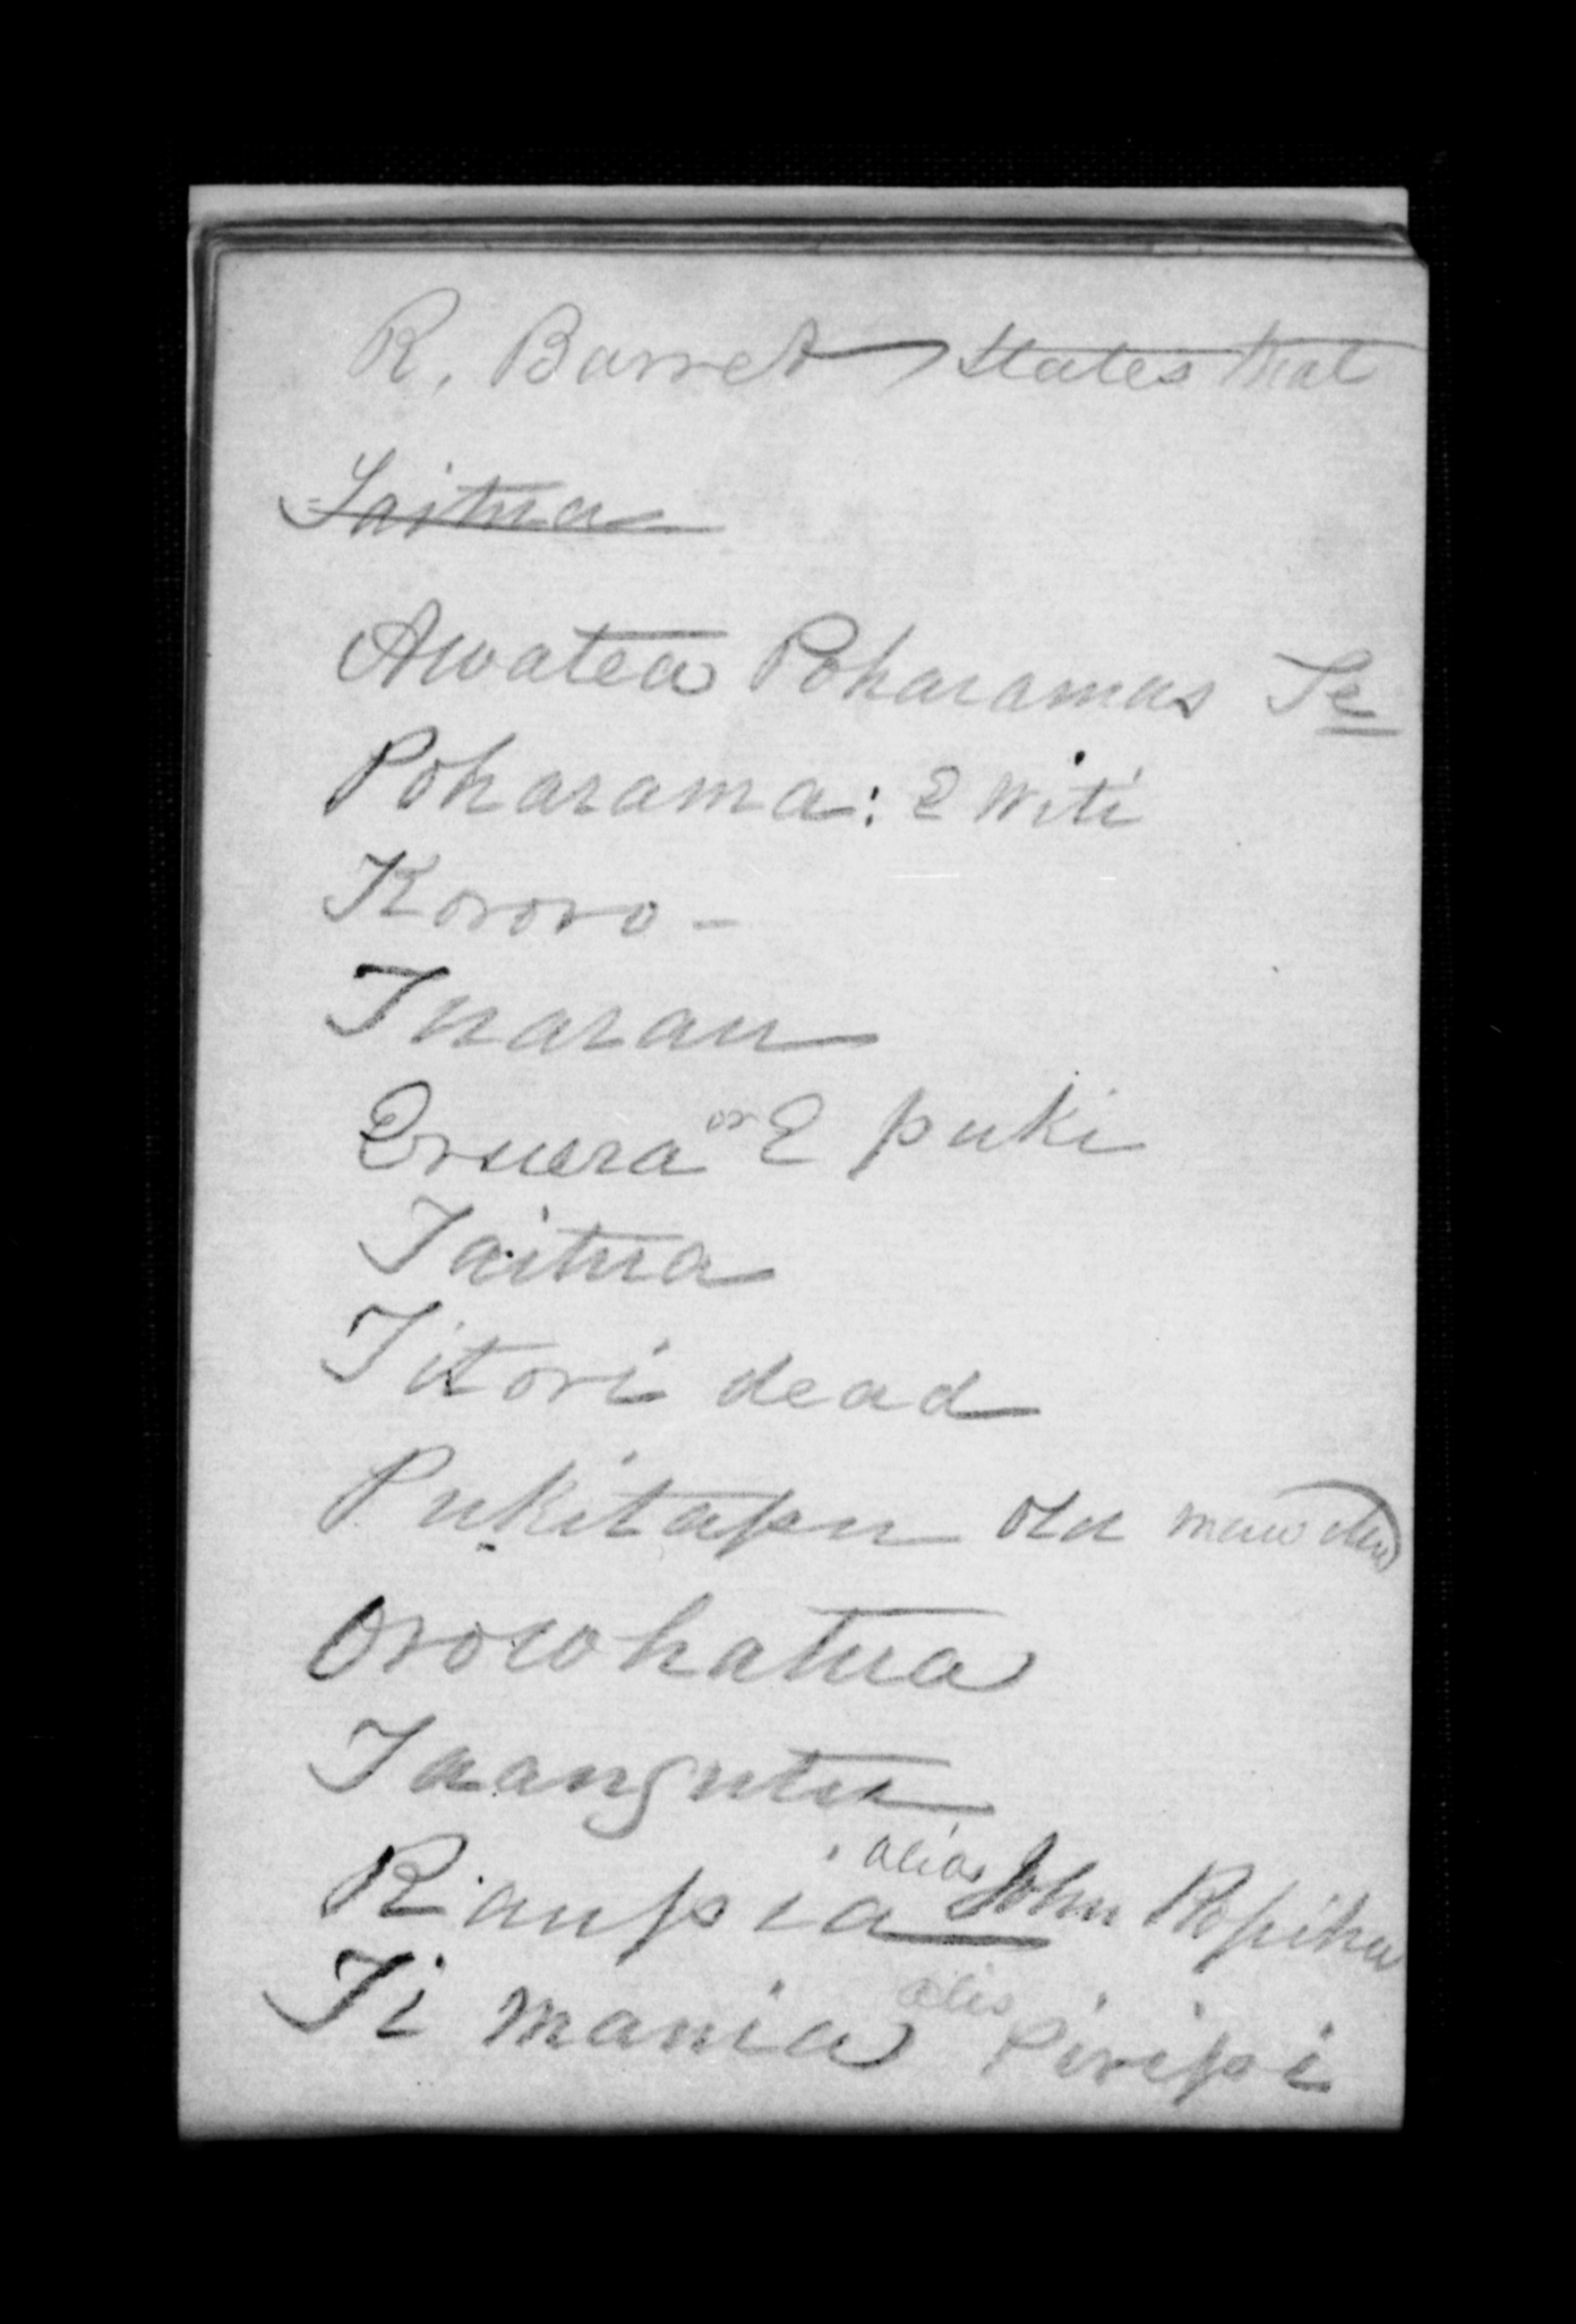 R. Barret states that
Taitua
Awatea Poharamas Te
Poharama: E Witi
Kororo -
Tuarau
Eruera or E puki
Taitua
Titori dead
Pukitapu old man
Orowhatua
Taangutu
Raupia alias John Ropiha
Ti mania alis Piripi